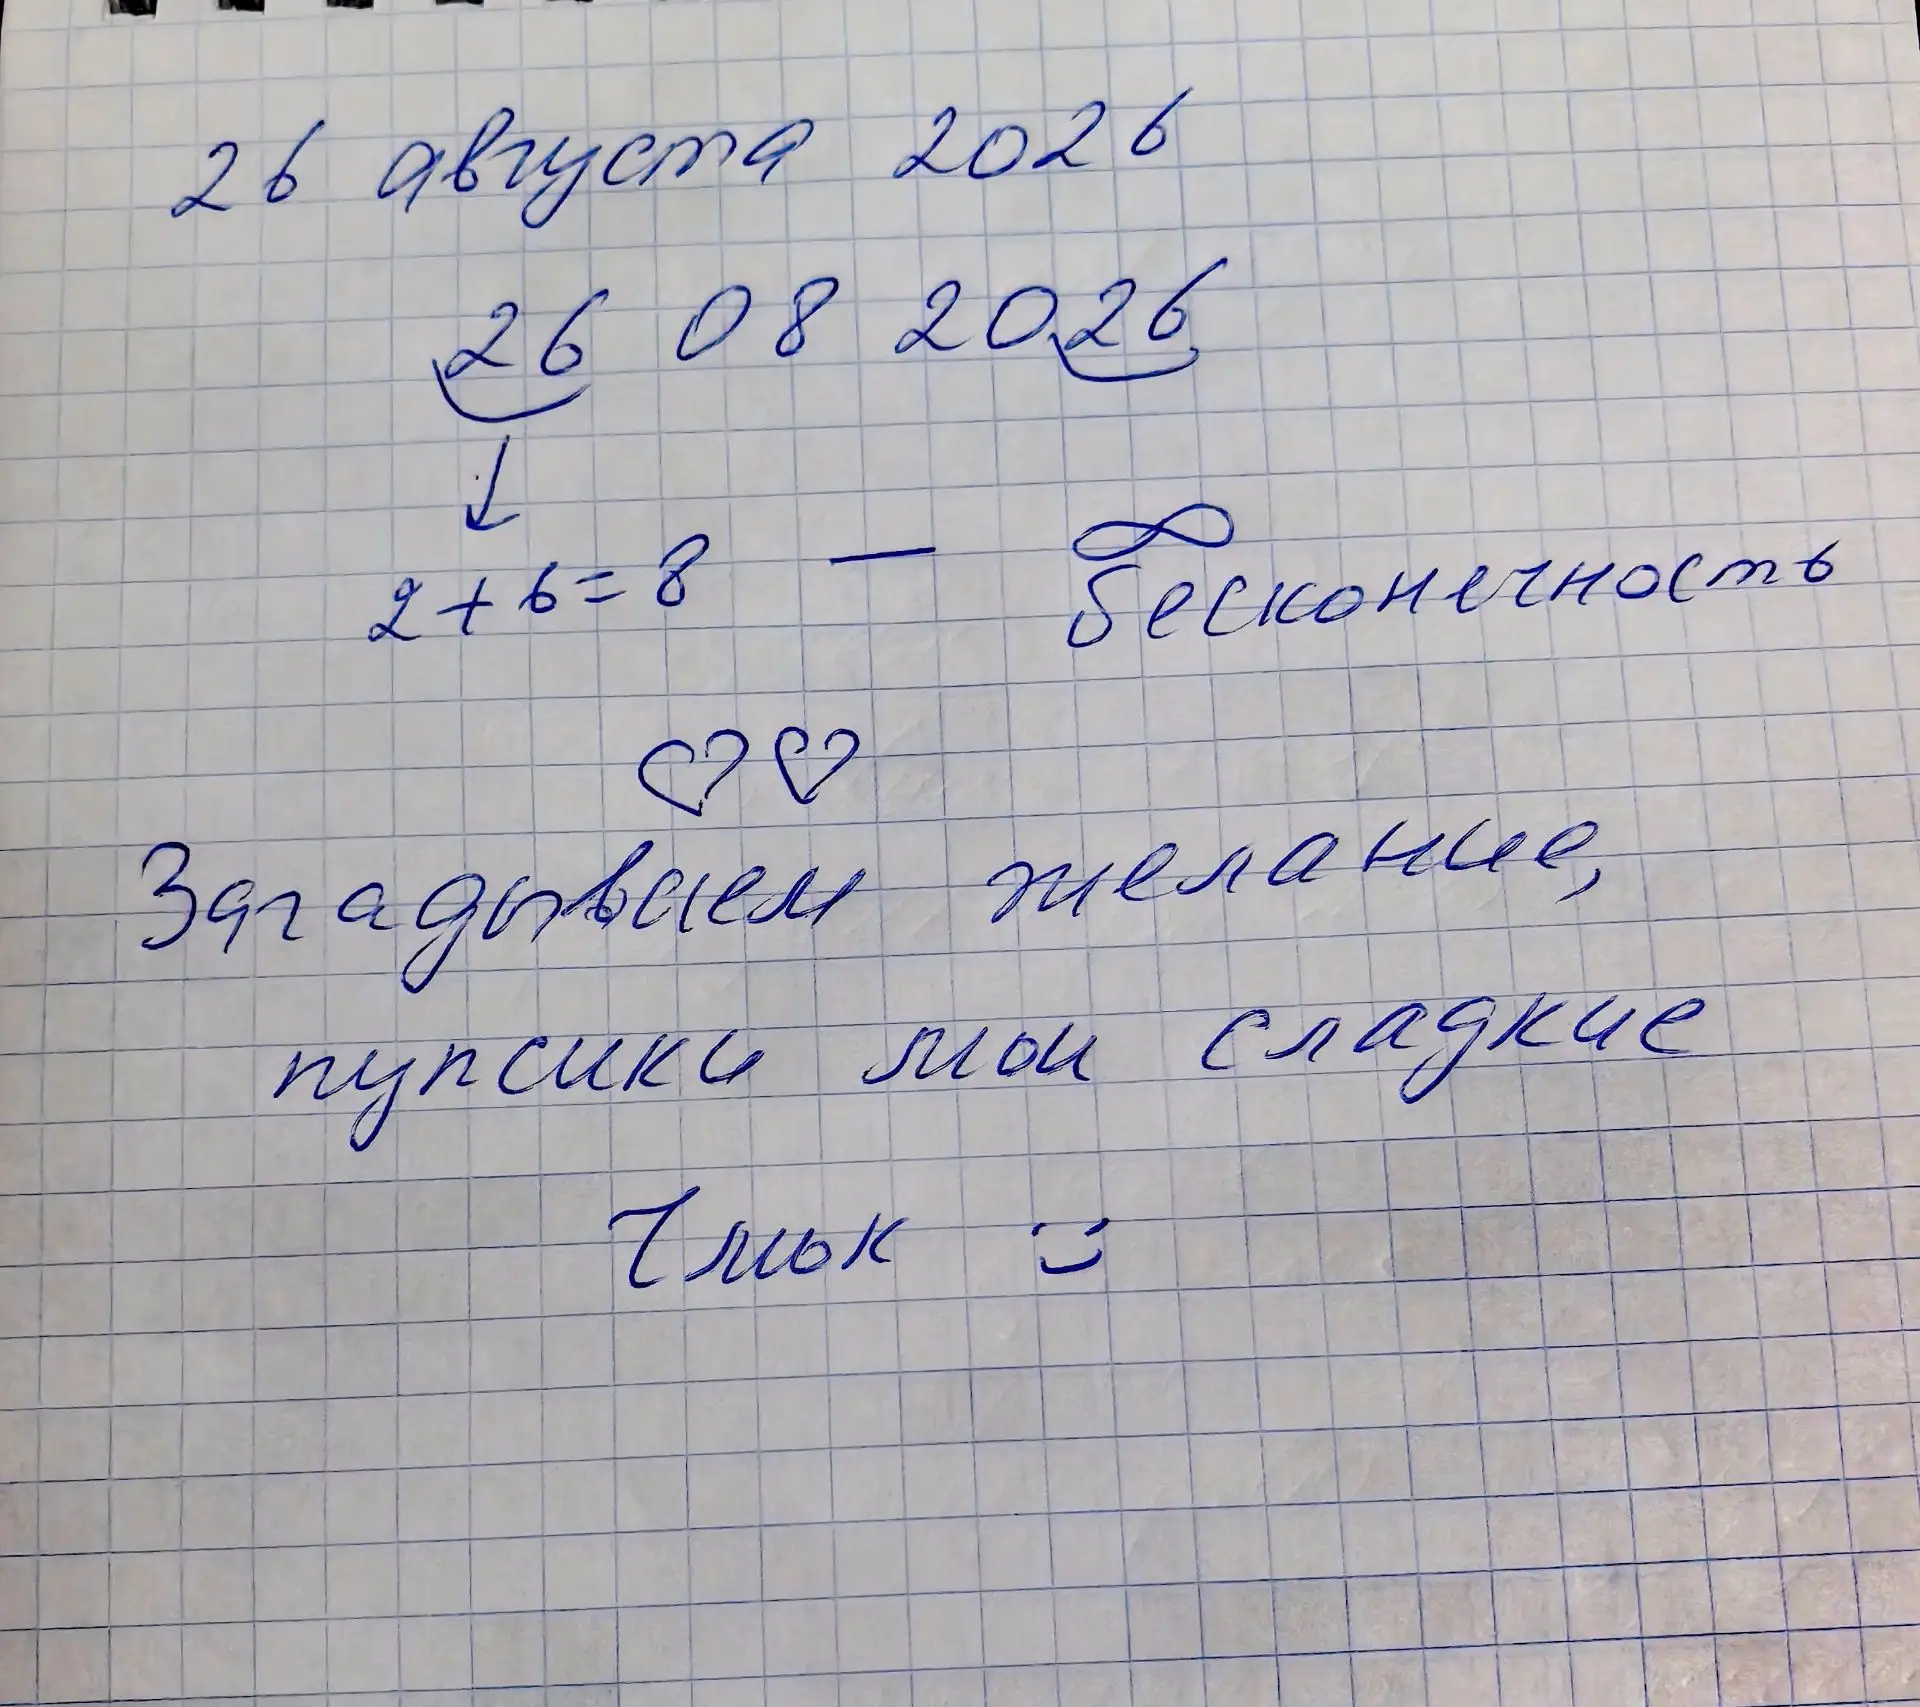 26 августа 2026
26 08 2026
↓
2+6=8 — ∞
бесконечность
♡♡
Загадываем желание,
пупсики мои сладкие
Чмок :)